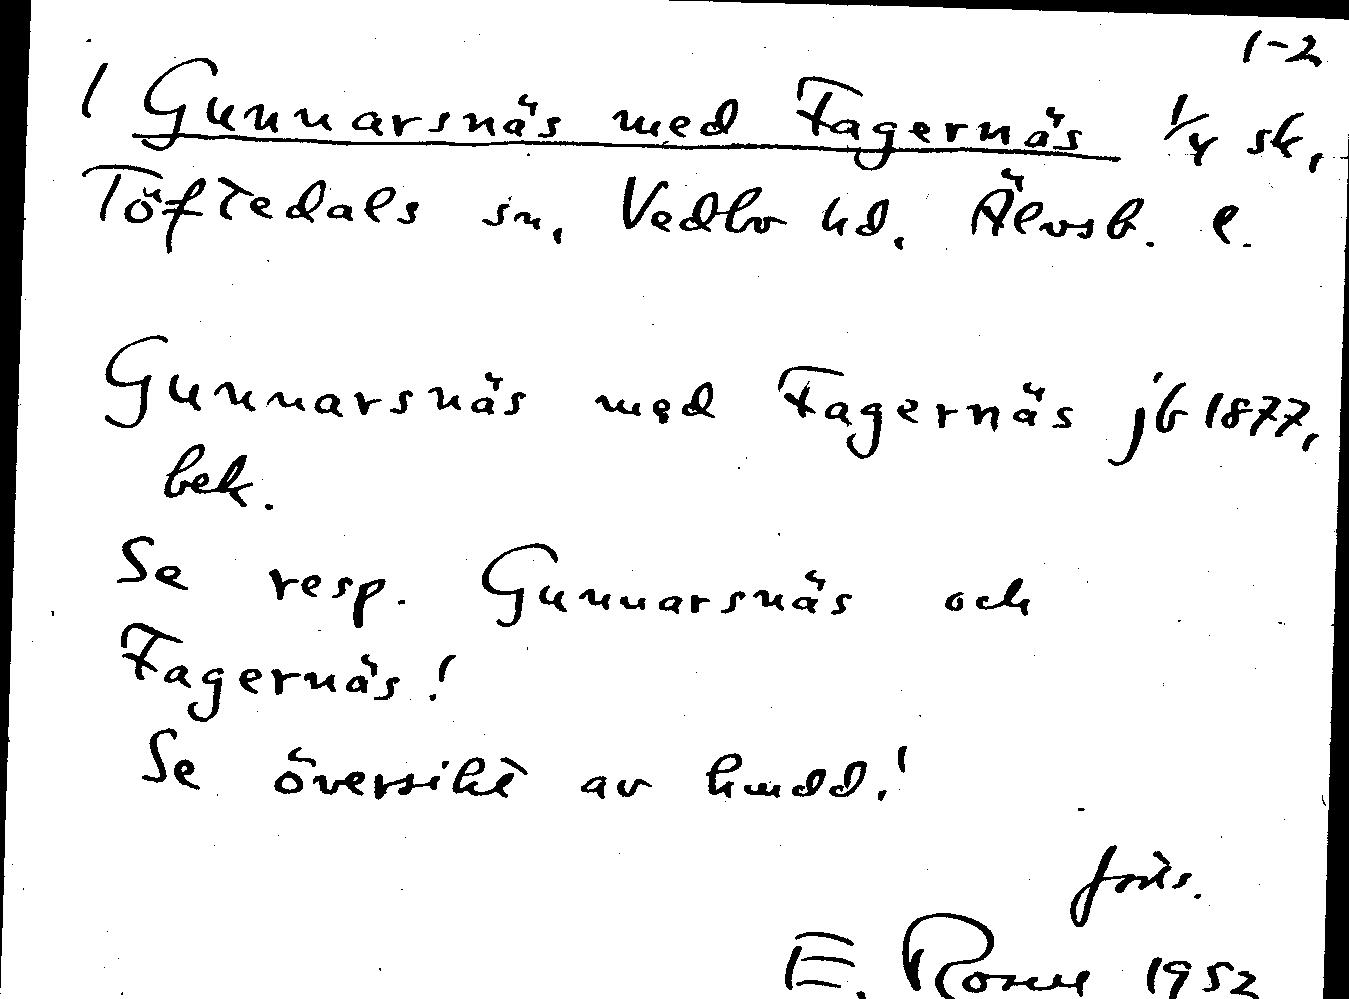 1-2
1 Gunnarsnäs med Fagernäs 1/4 sk,
Töftedals sn, Vedbo hd, Älvsb. l.
Gunnarsnäs med Fagernäs jb 1877,
bek.
Se resp. Gunnarsnäs och
Fagernäs!
Se översikt av hmdd.!
forts.
E. Rosell 1952